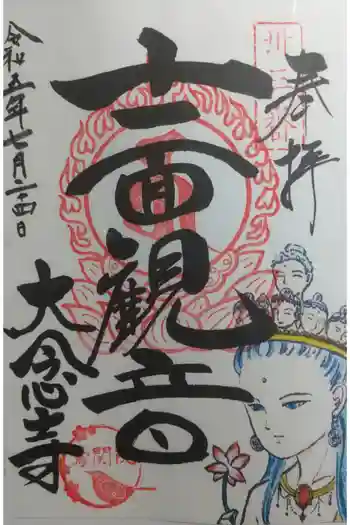 奉拝
十一面観音
大念寺
令和五年七月二十四日